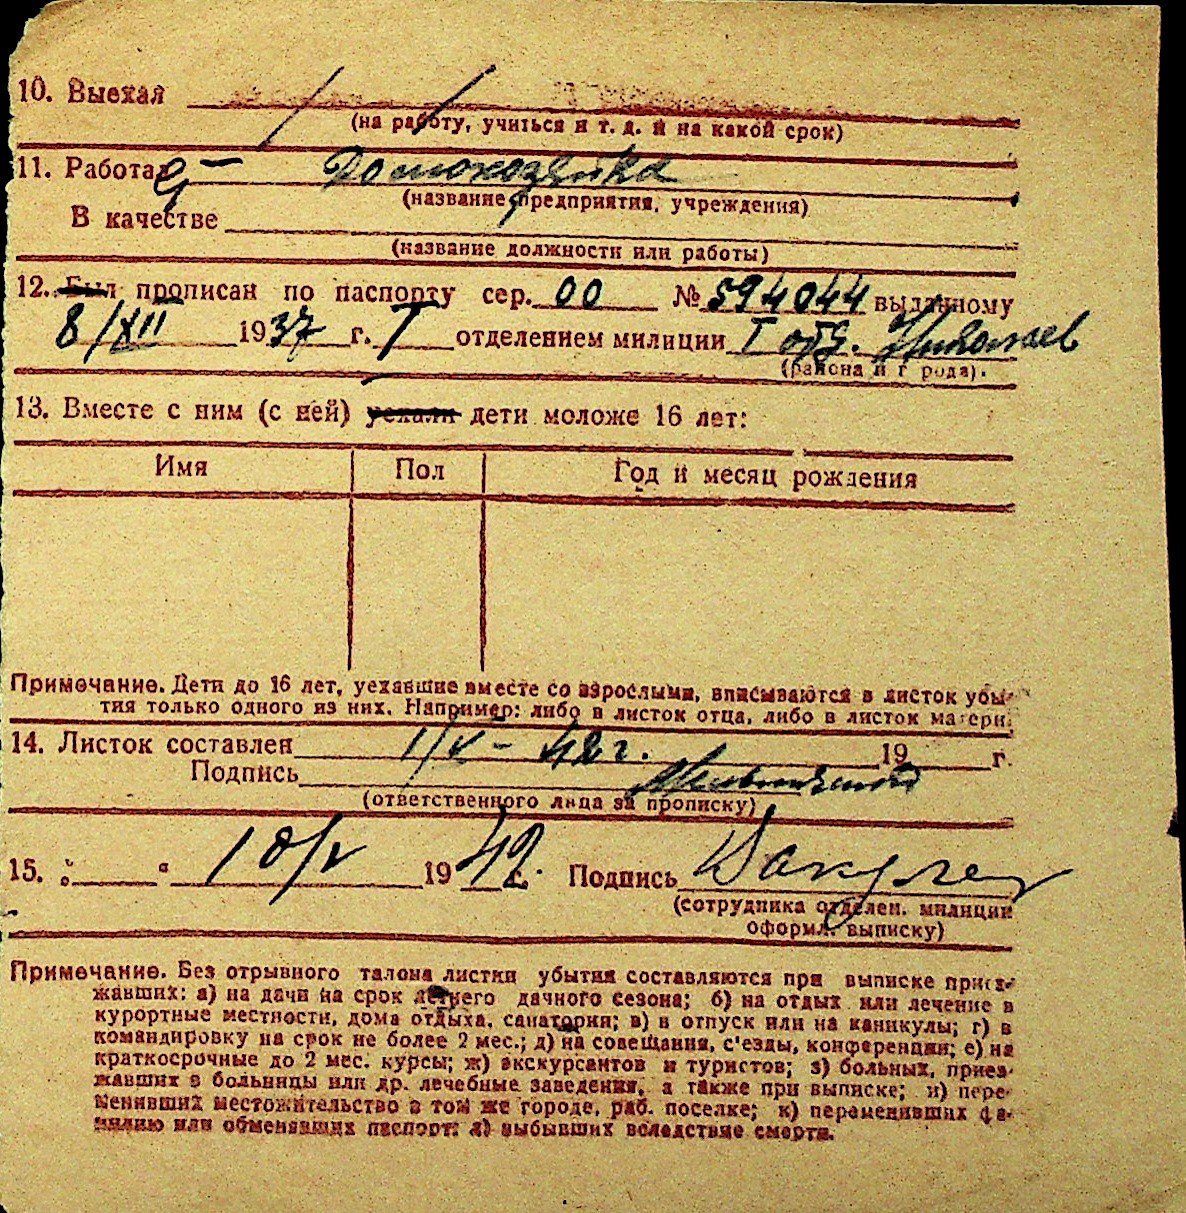 10. Выехал
(на работу, учиться и т. д. и на какой срок)
11. Работает — Домохозяйка
(название предприятия, учреждения)
В качестве
(название должности или работы)
12. Был прописан по паспорту сер. 00 № 594044 выданному
8/XII 1937 г. I отделением милиции I отд. Николаев
(района и города).
13. Вместе с ним (с ней) уехали дети моложе 16 лет:
Имя Пол Год и месяц рождения
Примечание. Дети до 16 лет, уехавшие вместе со взрослыми, вписываются в листок убы-
тия только одного из них. Например: либо в листок отца, либо в листок матери.
14. Листок составлен 1/V - 42 г. 19 г.
Подпись
(ответственного лица за прописку)
15. „ “ 10/V 1942 г. Подпись
(сотрудника отделен. милиции
оформл. выписку)
Примечание. Без отрывного талона листки убытия составляются при выписке приез-
жавших: а) на дачи на срок летнего дачного сезона; б) на отдых или лечение в
курортные местности, дома отдыха, санатории; в) в отпуск или на каникулы; г) в
командировку на срок не более 2 мес.; д) на совещания, с'езды, конференции; е) на
краткосрочные до 2 мес. курсы; ж) экскурсантов и туристов; з) больных, приез-
жавших в больницы или др. лечебные заведения, а также при выписке; и) пере-
менивших местожительство в том же городе, раб. поселке; к) переменивших фа-
милию или обменявших паспорт; л) выбывших вследствие смерти.